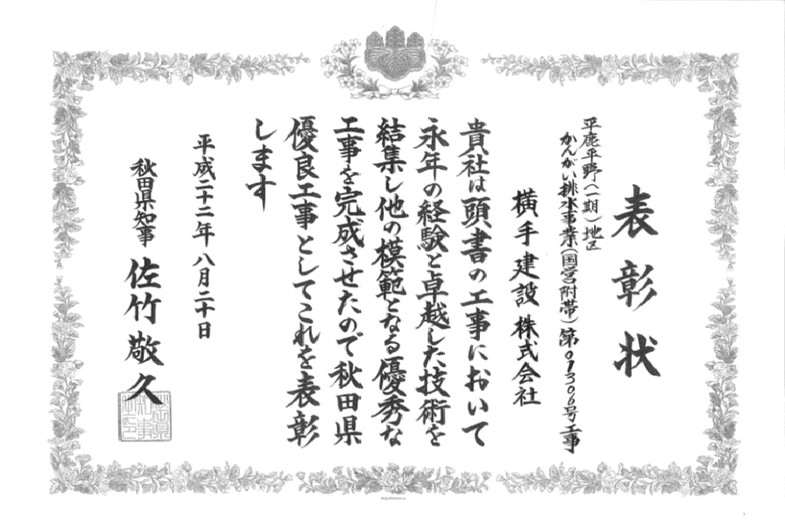 表彰状
平鹿平野(一期)地区
かんがい排水事業(国営附帯)第01306号工事
横手建設株式会社
貴社は頭書の工事において
永年の経験と卓越した技術を
結集し他の模範となる優秀な
工事を完成させたので秋田県
優良工事としてこれを表彰
します
平成二十二年八月二十日
秋田県知事 佐竹敬久